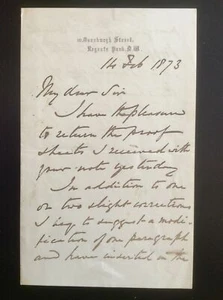 Regents Park, N.W.
14 Feb 1873
My dear Sir
I have the pleasure
to return the proof
sheets I received with
your note yesterday
In addition to one
or two slight corrections
I beg to suggest a modi-
fication of one paragraph
and have inserted in the